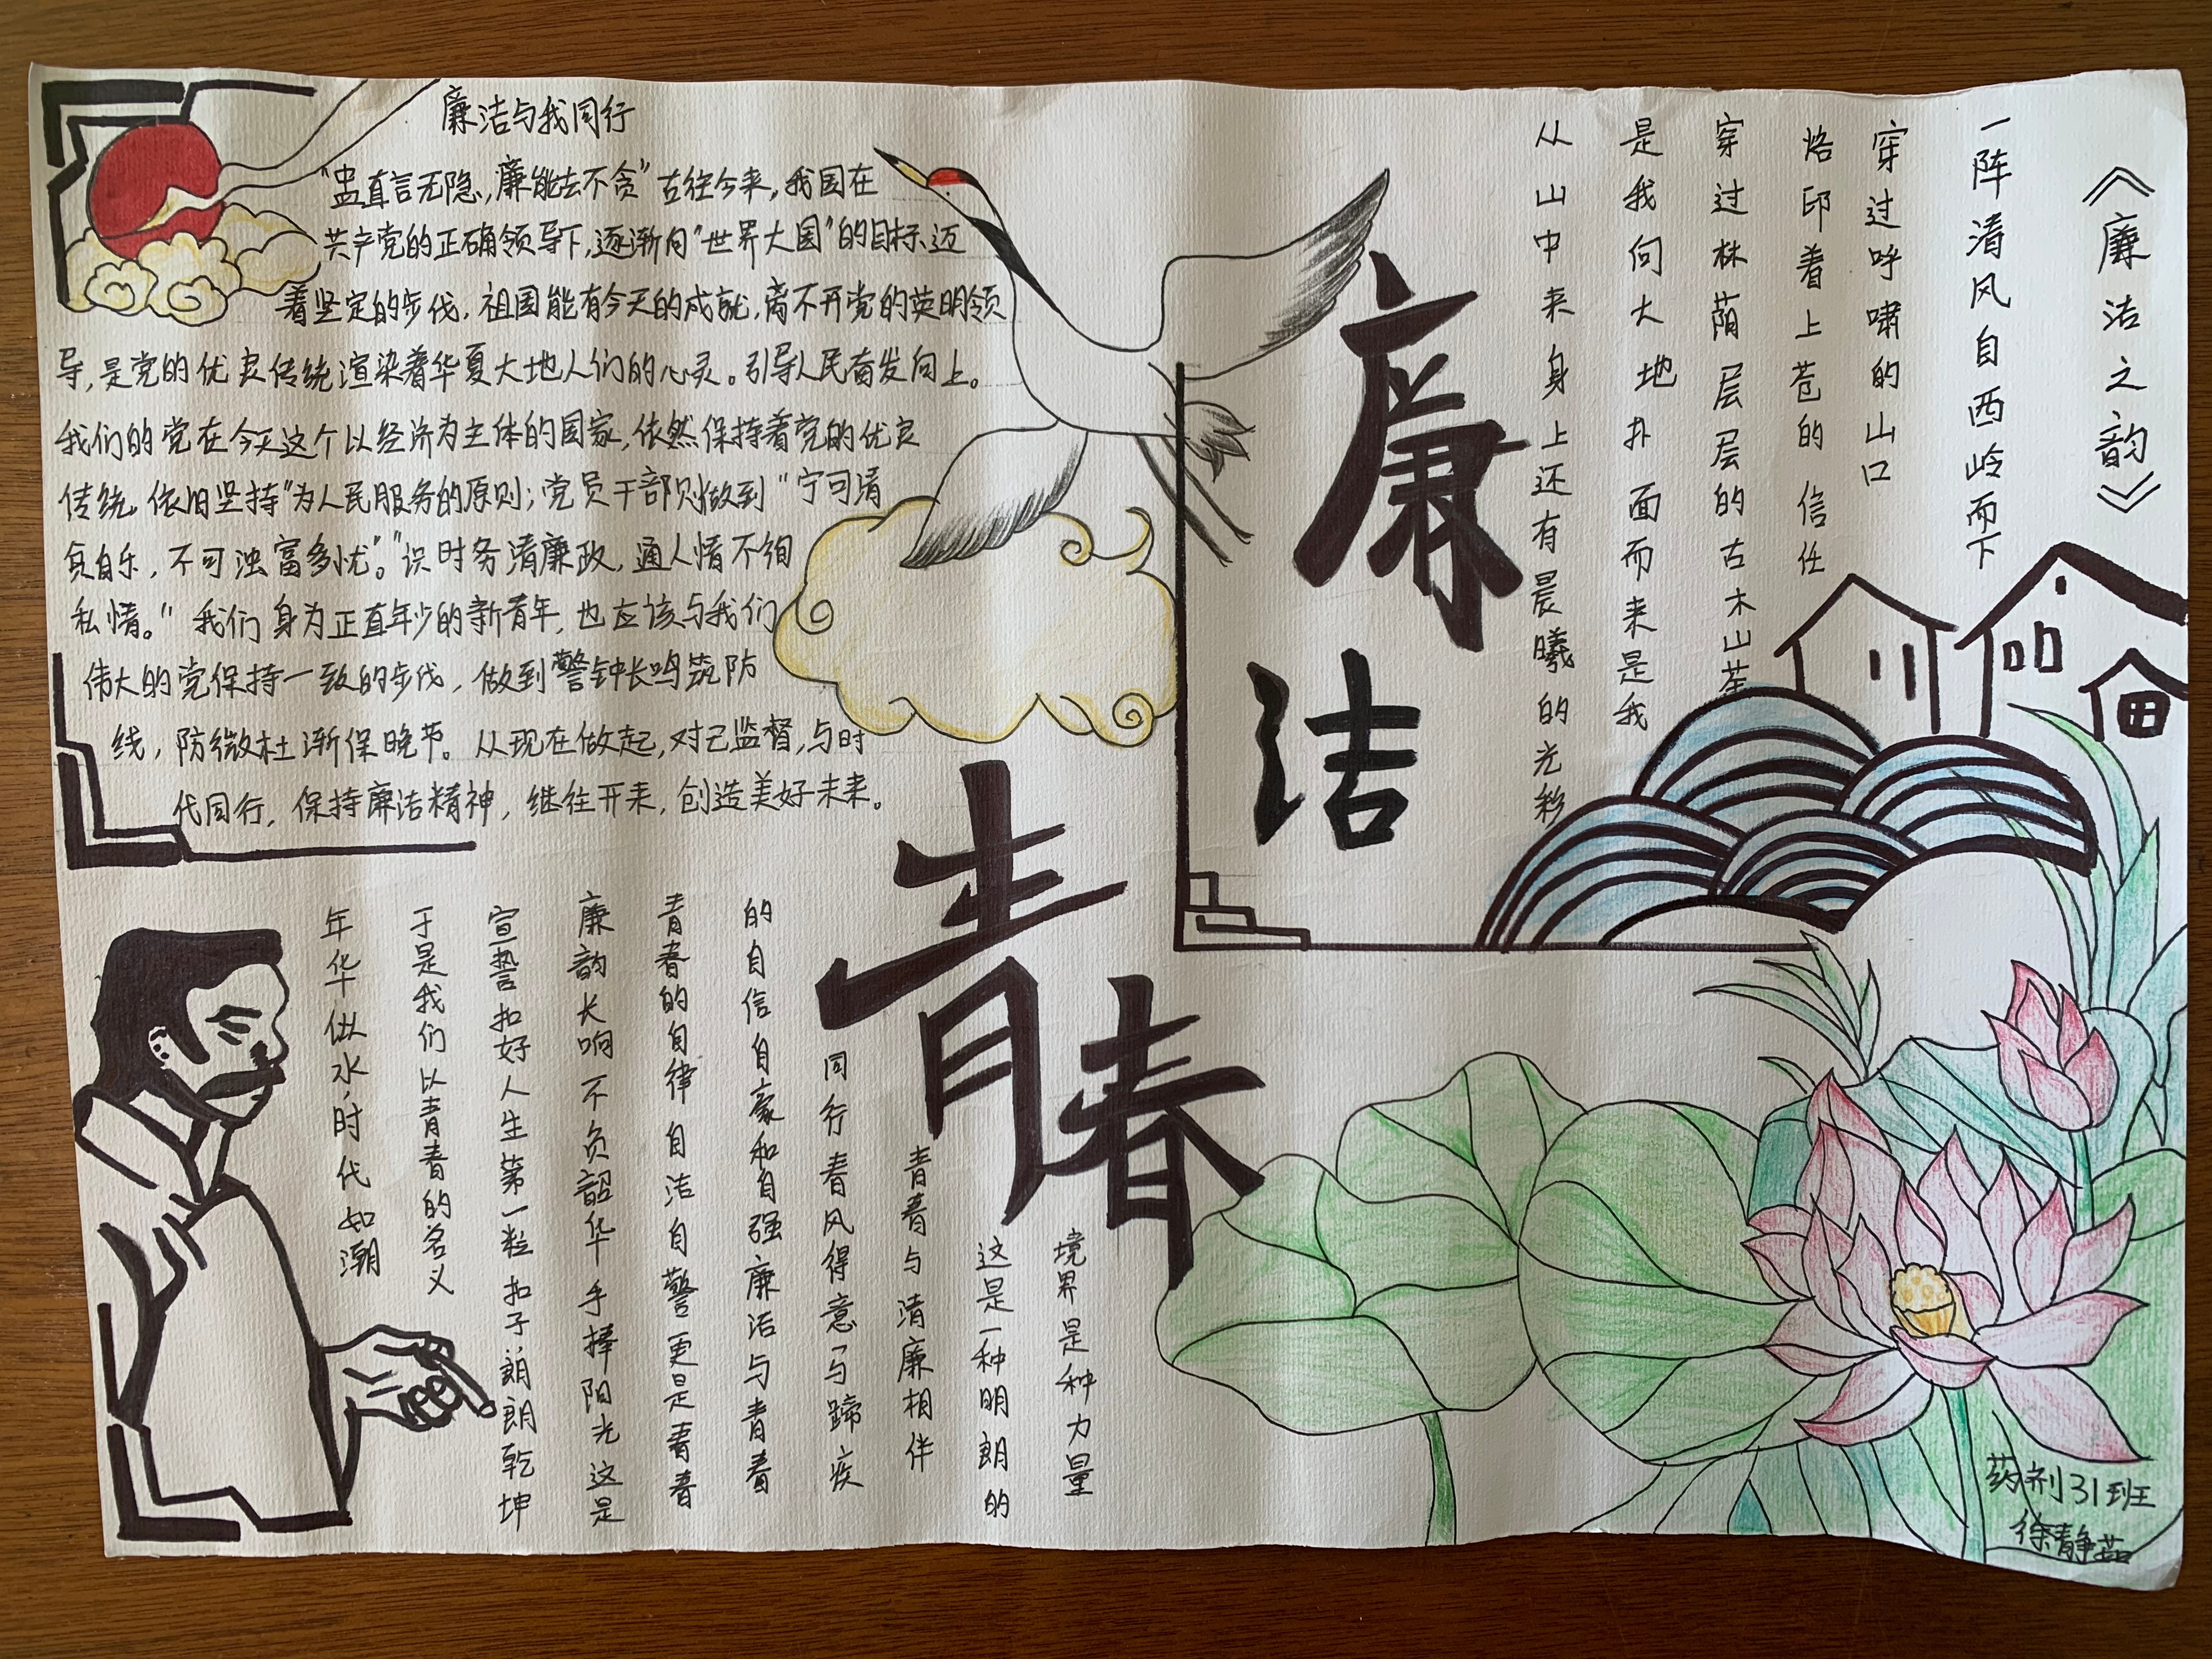 廉洁与我同行
“忠直言无隐，廉能去不贪”古往今来，我国在
共产党的正确领导下，逐渐向“世界大国”的目标迈
着坚定的步伐，祖国能有今天的成就，离不开党的英明领
导，是党的优良传统渲染着华夏大地人们的心灵。引导人民奋发向上。
我们的党在今天这个以经济为主体的国家，依然保持着党的优良
传统。依旧坚持“为人民服务的原则；党员干部则做到“宁可清
贫自乐，不可浊富多忧”。“识时务清廉政，通人情不徇
私情。” 我们身为正直年少的新青年，也应该与我们
伟大的党保持一致的步伐，做到警钟长鸣筑防
线，防微杜渐保晚节。从现在做起，对己监督，与时
代同行，保持廉洁精神，继往开来，创造美好未来。
廉洁
青春
《廉洁之韵》
一阵清风自西岭而下
穿过呼啸的山口
烙印着上苍的信任
穿过林荫层层的古木山茬
是我向大地扑面而来是我
从山中来身上还有晨曦的光彩
年华似水，时代如潮
于是我们以青春的名义
宣誓扣好人生第一粒扣子，朗朗乾坤
廉韵长响不负韶华手捧阳光这是
青春的自律自洁自警更是青春
的自信自豪和自强廉洁与青春
同行春风得意马蹄疾
青春与清廉相伴
这是一种明朗的
境界是种力量
药剂31班
徐静茹